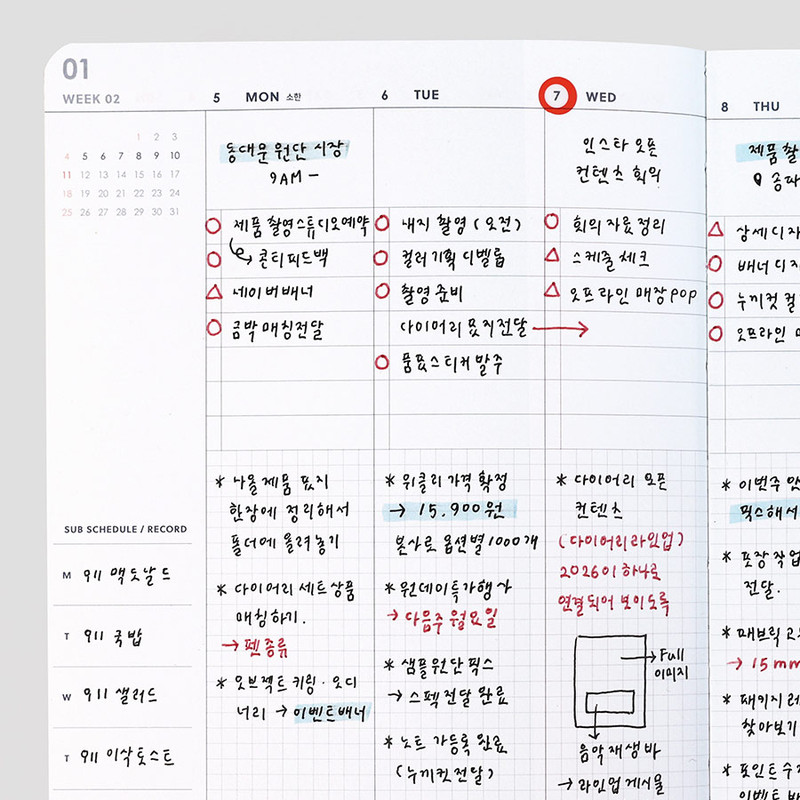 01
WEEK 02
1 2 3
4 5 6 7 8 9 10
11 12 13 14 15 16 17
18 19 20 21 22 23 24
25 26 27 28 29 30 31
SUB SCHEDULE / RECORD
M 911 맥도날드
T 911 국밥
W 911 샐러드
T 911 이삭토스트
5 MON 소한
동대문 원단 시장
9AM -
제품 촬영 스튜디오 예약
콘티피드백
네이버 배너
금박 매칭 전달
* 나올 제품 표지
한장에 정리해서
폴더에 올려놓기
* 다이어리 세트상품
매칭하기.
→ 펜 종류
* 오브젝트 키링 · 오디
너리 → 이벤트배너
6 TUE
내지 촬영 (오전)
컬러 기획 디벨롭
촬영 준비
다이어리 표지전달 →
품표스티커 발주
* 위클리 가격 확정
→ 15,900원
본사로 옵션별 1000개
* 원데이특가행사
→ 다음주 월요일
* 샘플원단 픽스
→ 스펙전달 완료
* 노트 가등록 완료
(누끼컷전달)
7 WED
인스타 오픈
컨텐츠 회의
회의 자료 정리
스케줄 체크
오프라인 매장 POP
* 다이어리 오픈
컨텐츠
(다이어리라인업)
2026이 하나로
연결되어 보이도록
Full
이미지
음악 재생 바
→ 라인업 게시물
8 THU
제품 촬
상세 디자
배너 디자
누끼컷 컬
오프라인
* 이번주 안
픽스해서
* 포장 작업
전달.
* 패브릭
→ 15mm
* 패키지 레
찾아보기
* 포인트 수
이벤트 배